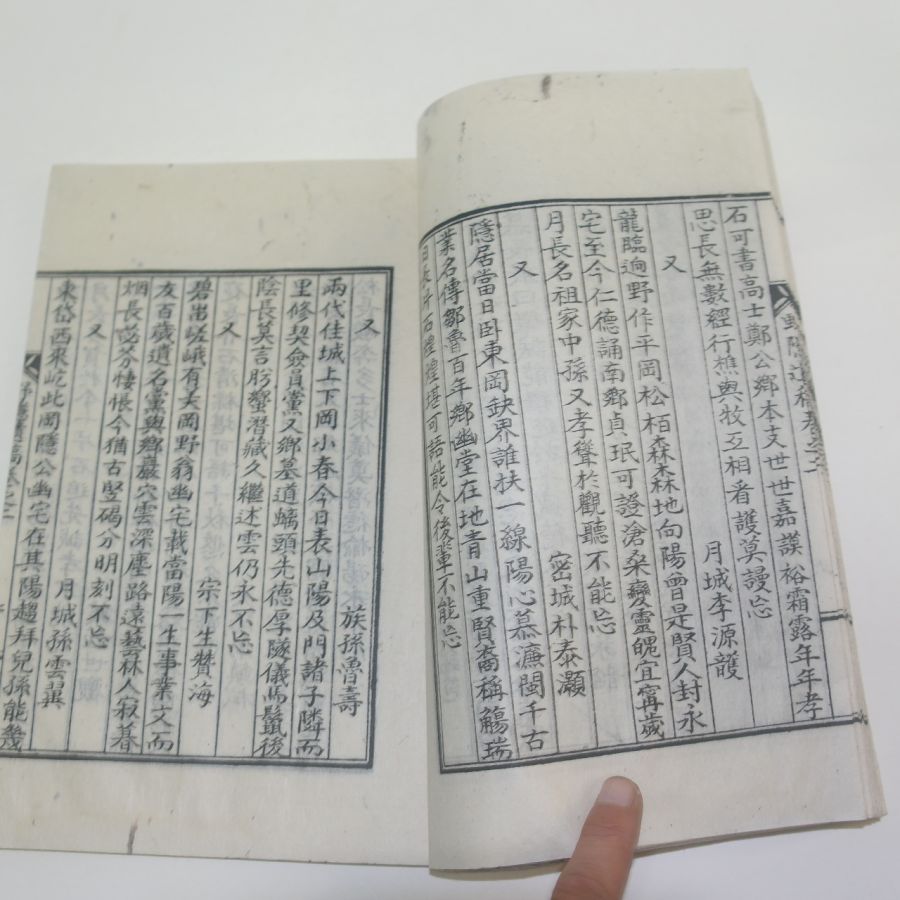 野隱遺稿卷之二
石可書高士鄭公鄉本支世世嘉謨裕霜露年年孝
思長無數經行樵與牧互相看護莫謾忘
又 月城李源頀
龍臨逈野作平岡松栢森森地向陽曾是賢人封永
宅至今仁德誦南鄉貞珉可證滄桑變靈魄宜甯歲
月長名祖家中孫又孝聳於觀聽不能忘
又 密城朴泰灝
隱居當日卧東岡缺界誰扶一線陽心慕濂閩千古
業名傳鄒魯百年鄉幽堂在地青山重賢裔稱觴瑞
日長片石煌煌堪可語能令後輩不能忘
又 族孫魯壽
兩代佳城上下岡小春今日表山陽及門諸子隣而
里修契僉員黨又鄉墓道螭頭先德厚隊儀馬鬣後
陰長莫言肹蠁潛藏久繼述雲仍永不忘
又 宗下生贊海
碧出嵯峨有大岡野翁幽宅載當陽一生事業文而
友百歲遺名黨與鄉巖穴雲深塵路遠藝林人寂暮
烟長苾芬悽悵今猶古竪碣分明刻不忘
又 月城孫雲翼
東岱西來屹此岡隱公幽宅在其陽趨拜兒孫能幾